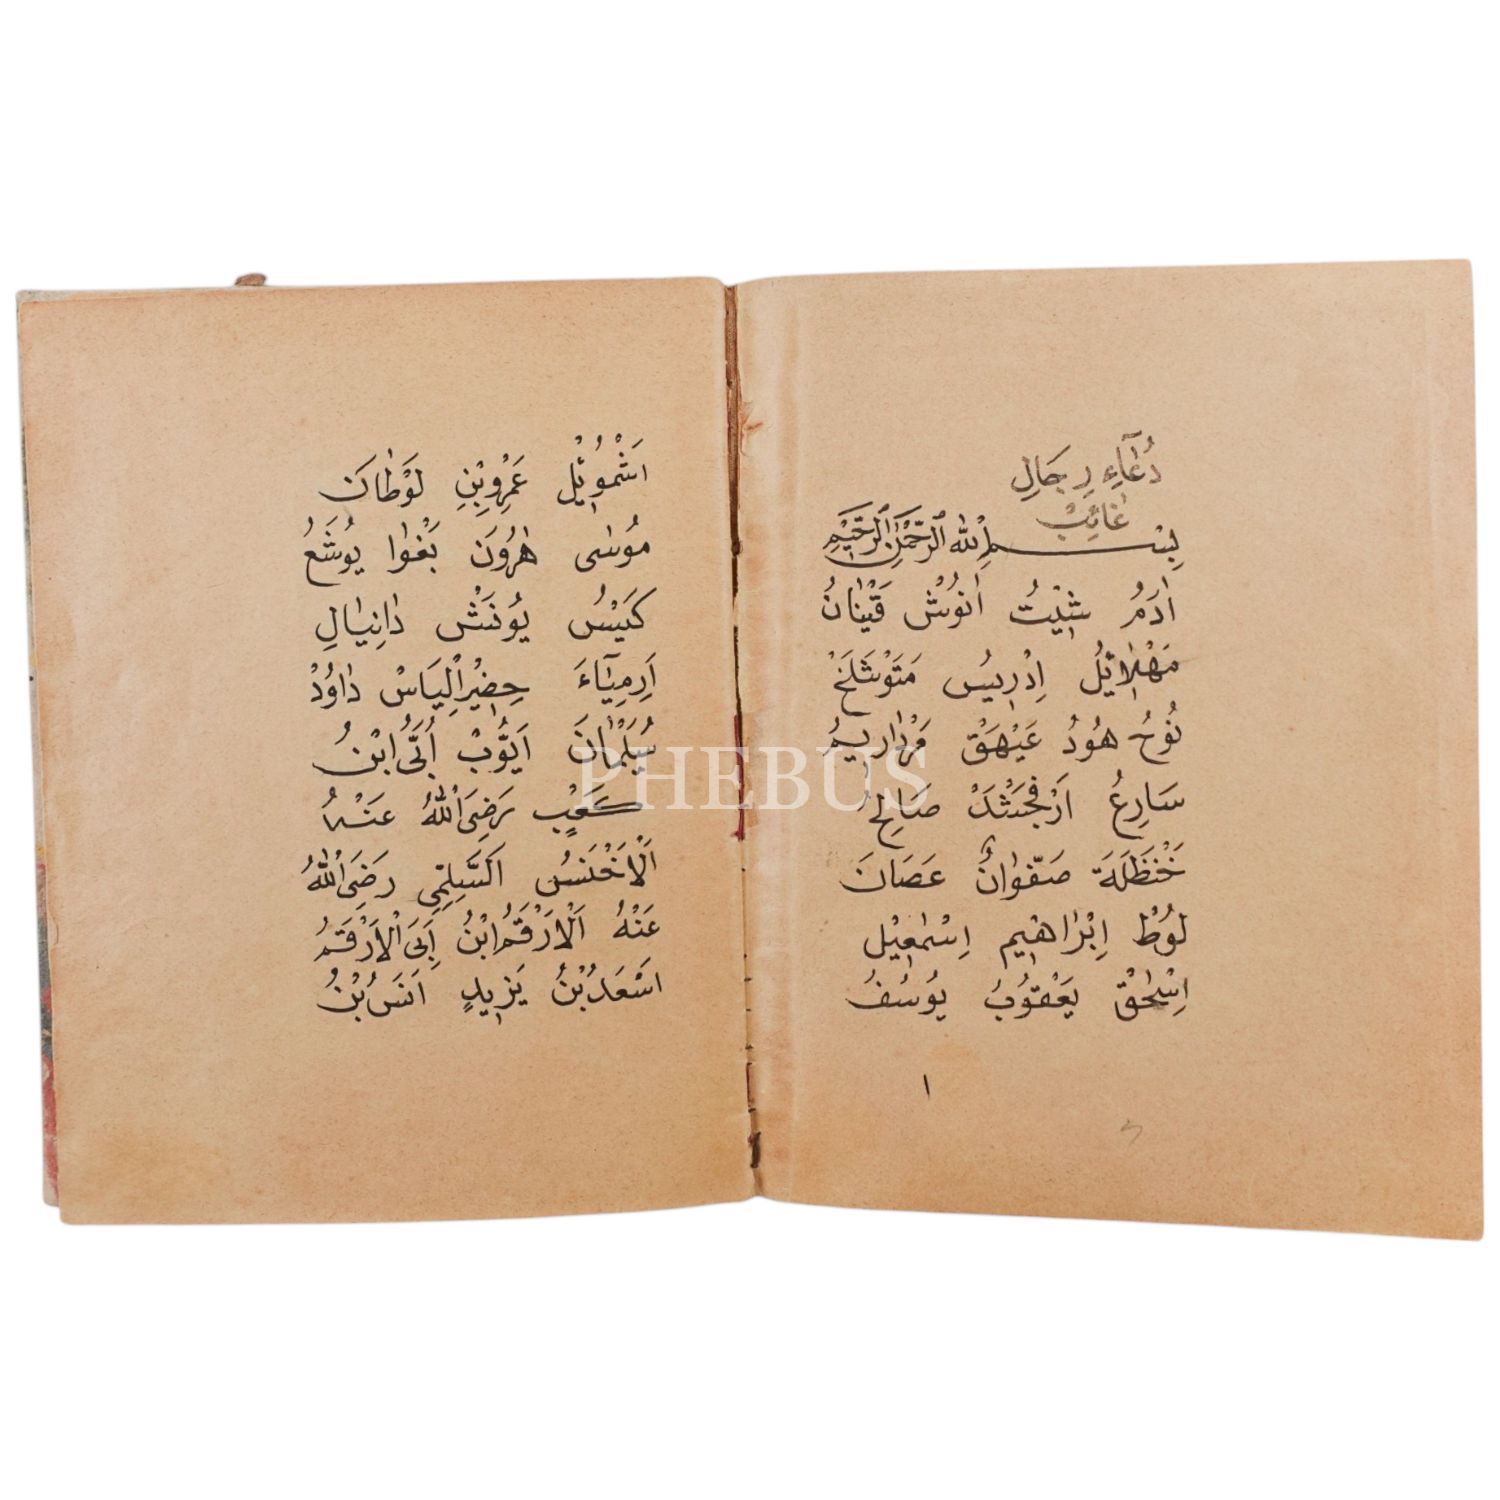 دُعَآءِ رِجَالِ
غَائِبْ
بِسْمِ اللهِ الرَّحْمٰنِ الرَّحِيْمِ
اٰدَمُ شِيْتُ اَنُوْشْ قَيْنَانُ
مَهْلَائِلُ اِدْرِيسُ مَتَوْشَلَخْ
نُوحُ هُودُ عَيْهَقْ مَرْدَارِيمُ
سَارِعُ اَرْفَحْشَدْ صَالِحُ
حَنْظَلَةَ صَفْوَانُ عَصَانَ
لُوْطْ اِبْرَاهِيمِ اِسْمٰعِيْل
اِسْحٰقْ يَعْقُوبُ يُوسُفُ
١
اَشْمُوئِلْ عَمْرِوبْنِ لَوْطَانَ
مُوسٰى هٰرُونَ بَغْوَا يُوشَعُ
كَيْسُ يُونَسْ دَانِيَالِ
اَرِمِيَآءَ حِضِيْرْ اِلْيَاسْ دَاوُدْ
سُلَيْمَانَ اَيُّوبْ اُبَيُّ ابْنُ
كَعْبٍ رَضِىَ اللهُ عَنْهُ
اَلْاَخْنَسُ اَلسَّلِمِّي رَضِىَ اللهُ
عَنْهُ اَلْاَرْقَمُ ابْنُ اَبِى الْاَرْقَمُ
اَسْعَدُ بْنُ يَزِيدٍ اَنَسُ بْنُ
PHEBUS